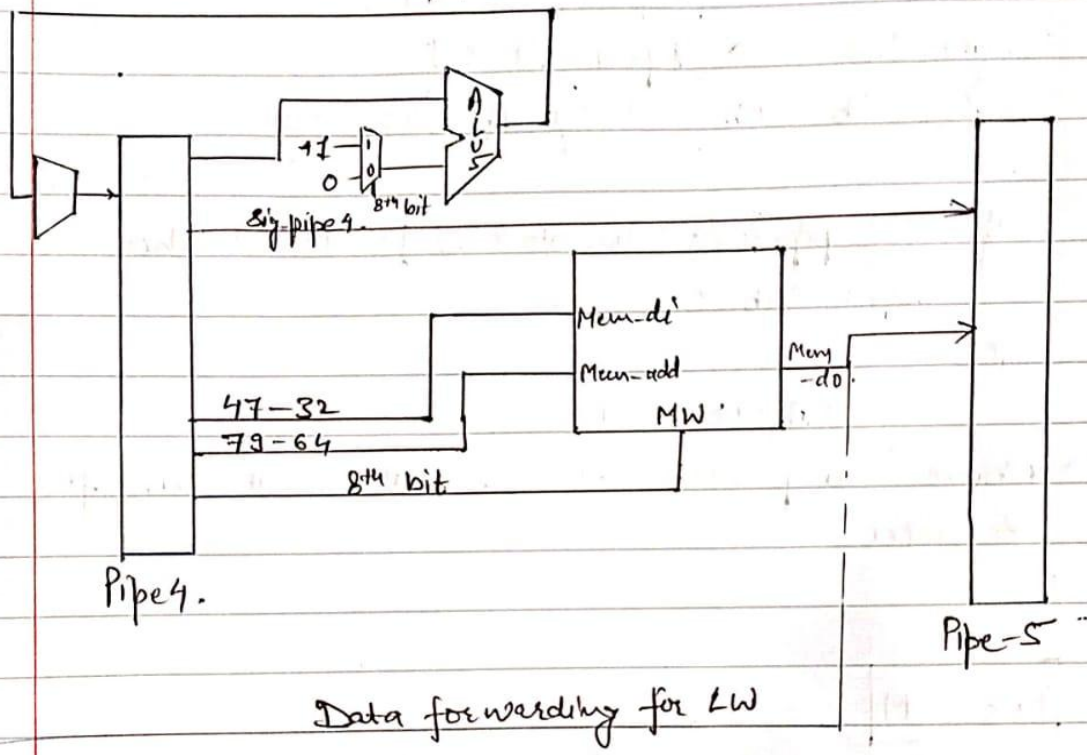 ALU5
+1
1
0
0
8th bit
Sig-pipe4.
Mem-di
Mem-add
Mem
-do.
MW
47-32
79-64
8th bit
Pipe4.
Pipe-5
Data forwarding for LW